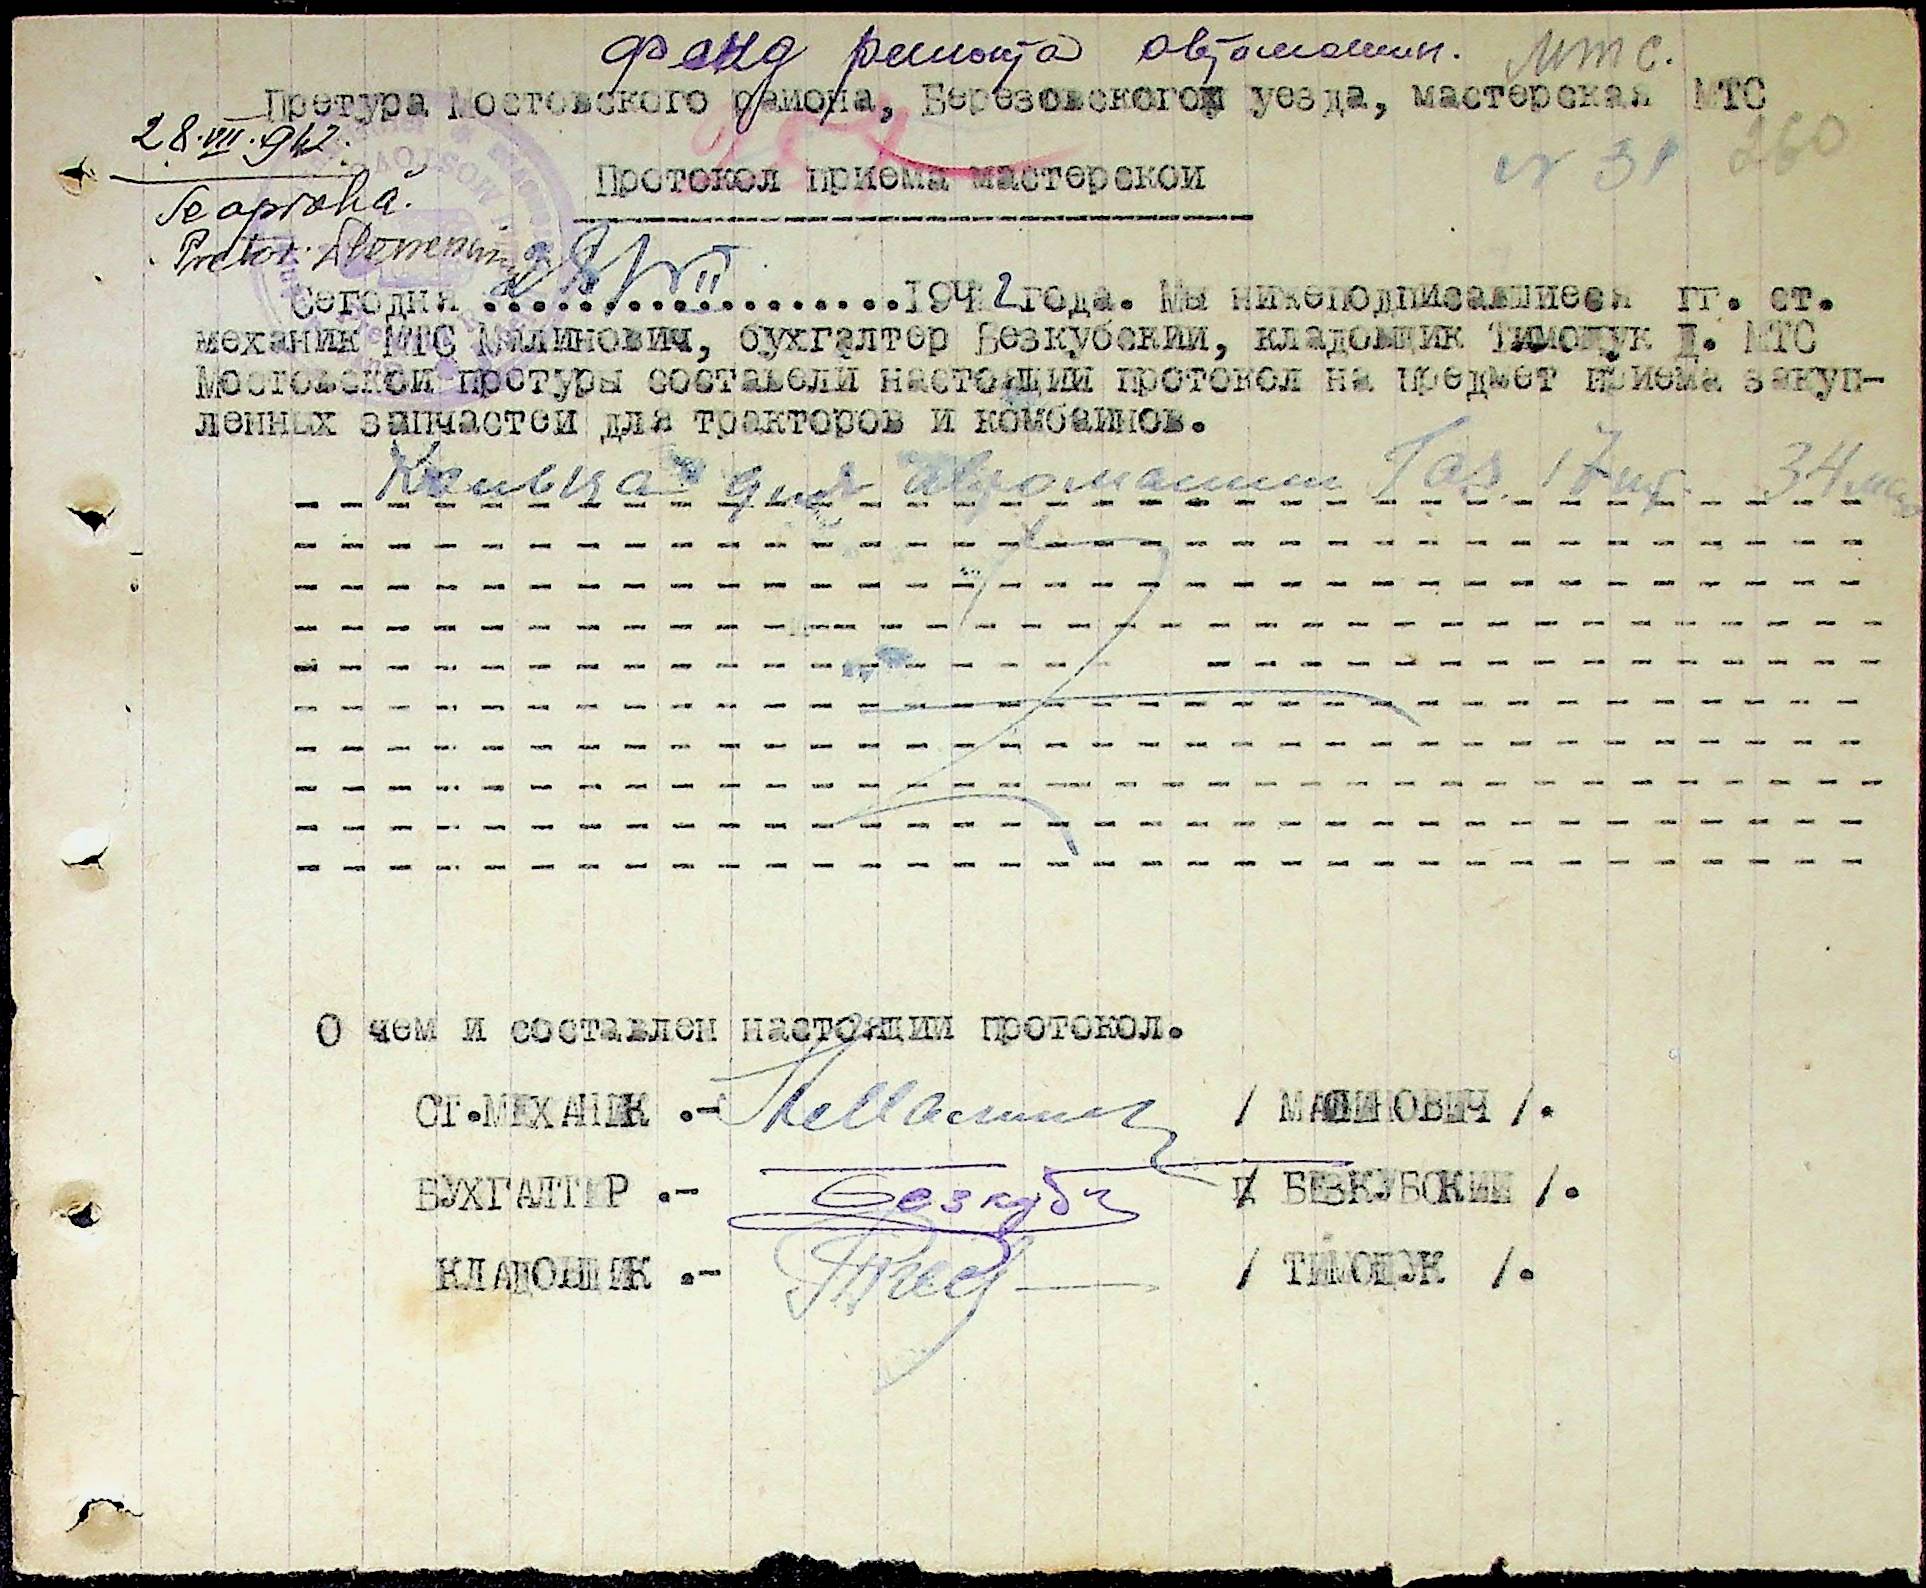 Фонд ремонта автомашин. МТС.
Претура Мостовского района, Березовского уезда, мастерская МТС
28.VII.942.
260
Протокол приема мастерской
N 31
Se aprobă.
Pretor.
28/VII
Сегодня ..................1942 года. Мы нижеподписавшиеся гг. ст.
механик МТС Малинович, бухгалтер Безкубский, кладовщик Тимощук Д. МТС
Мостовской претуры составели настоящий протокол на предмет приема закуп-
ленных запчастей для тракторов и комбайнов.
Кольца для автомашин Газ. 17 шт. 34
О чем и составлен настоящий протокол.
СТ.МЕХАНИК .- / МАЛИНОВИЧ /.
БУХГАЛТЕР .- Безкуб / БЕЗКУБСКИЙ /.
КЛАДОВЩИК .- / ТИМОЩУК /.